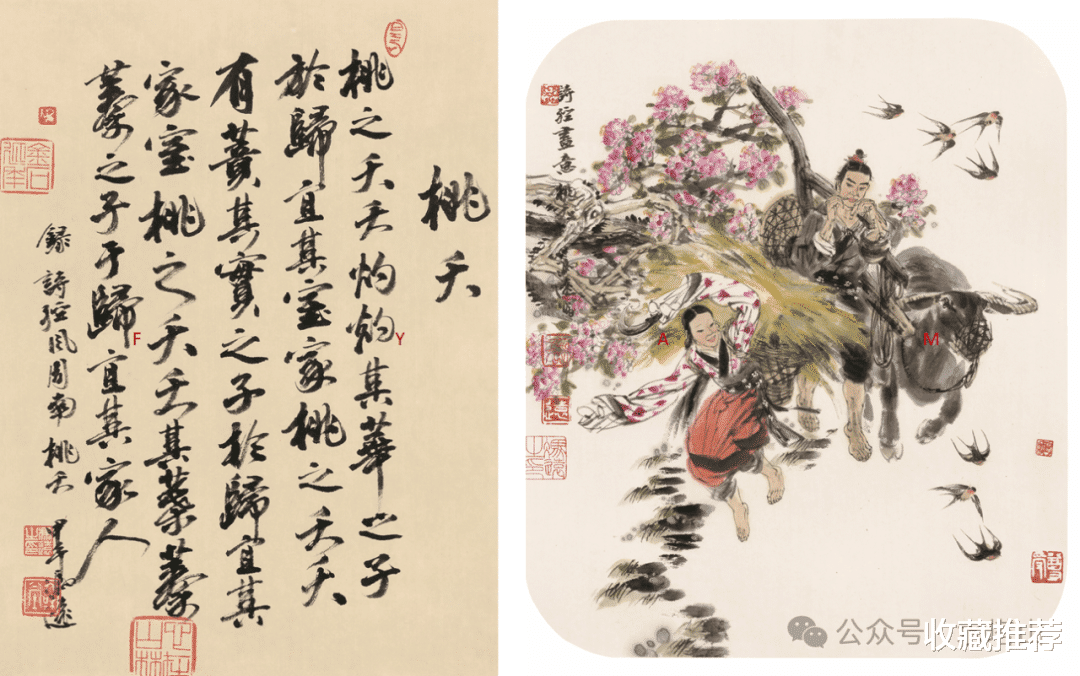 桃夭
桃之夭夭灼灼其華之子
於歸宜其室家桃之夭夭
有蕡其實之子於歸宜其
家室桃之夭夭其葉蓁
蓁之子于歸宜其家人
錄詩經風周南桃夭
甲午
金石延年
F
Y
詩經畫意桃
A
M
公众号
收藏推荐